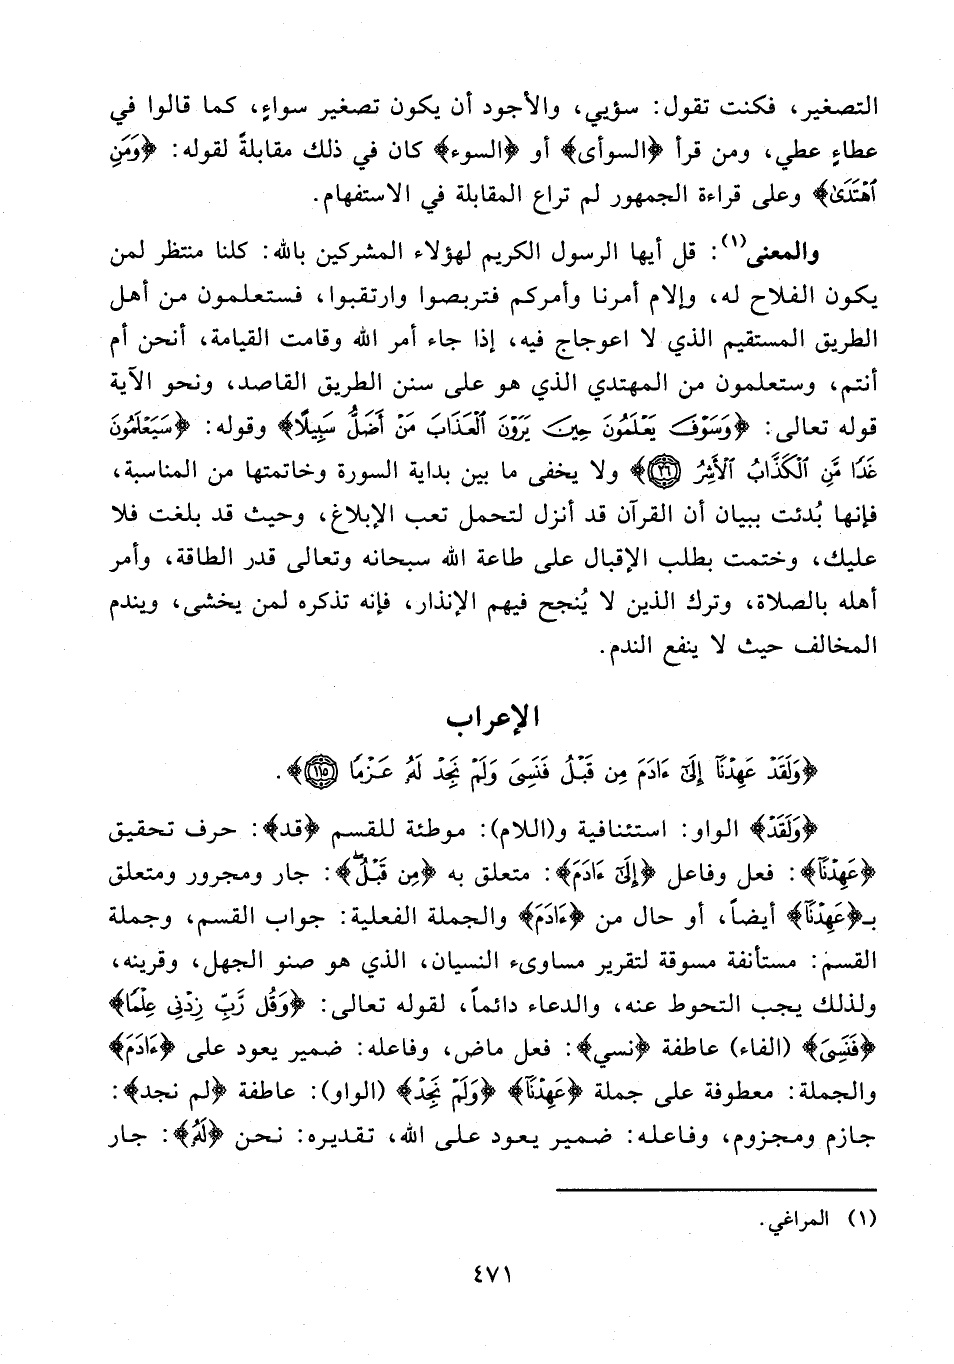 التصغير، فكنت تقول: سؤيي، والأجود أن يكون تصغير سواءٍ، كما قالوا في
عطاءٍ عطي، ومن قرأ ﴿السوأى﴾ أو ﴿السوء﴾ كان في ذلك مقابلةً لقوله: ﴿وَمَنِ
ٱهْتَدَىٰ﴾ وعلى قراءة الجمهور لم تراع المقابلة في الاستفهام.
والمعنى(١): قل أيها الرسول الكريم لهؤلاء المشركين بالله: كلنا منتظر لمن
يكون الفلاح له، وإلام أمرنا وأمركم فتربصوا وارتقبوا، فستعلمون من أهل
الطريق المستقيم الذي لا اعوجاج فيه، إذا جاء أمر الله وقامت القيامة، أنحن أم
أنتم، وستعلمون من المهتدي الذي هو على سنن الطريق القاصد، ونحو الآية
قوله تعالى: ﴿وَسَوْفَ يَعْلَمُونَ حِينَ يَرَوْنَ ٱلْعَذَابَ مَنْ أَضَلُّ سَبِيلًا﴾ وقوله: ﴿سَيَعْلَمُونَ
غَدًا مَّنِ ٱلْكَذَّابُ ٱلْأَشِرُ ٢٦﴾ ولا يخفى ما بين بداية السورة وخاتمتها من المناسبة،
فإنها بُدئت ببيان أن القرآن قد أنزل لتحمل تعب الإبلاغ، وحيث قد بلغت فلا
عليك، وختمت بطلب الإقبال على طاعة الله سبحانه وتعالى قدر الطاقة، وأمر
أهله بالصلاة، وترك الذين لا يُنجح فيهم الإنذار، فإنه تذكره لمن يخشى، ويندم
المخالف حيث لا ينفع الندم.
الإعراب
﴿وَلَقَدْ عَهِدْنَآ إِلَىٰٓ ءَادَمَ مِن قَبْلُ فَنَسِىَ وَلَمْ نَجِدْ لَهُۥ عَزْمًا ١١٥﴾.
﴿وَلَقَدْ﴾ الواو: استئنافية و(اللام): موطئة للقسم ﴿قد﴾: حرف تحقيق
﴿عَهِدْنَآ﴾: فعل وفاعل ﴿إِلَىٰٓ ءَادَمَ﴾: متعلق به ﴿مِن قَبْلُ﴾: جار ومجرور ومتعلق
بـ﴿عَهِدْنَآ﴾ أيضاً، أو حال من ﴿ءَادَمَ﴾ والجملة الفعلية: جواب القسم، وجملة
القسم: مستأنفة مسوقة لتقرير مساوىء النسيان، الذي هو صنو الجهل، وقرينه،
ولذلك يجب التحوط عنه، والدعاء دائماً، لقوله تعالى: ﴿وَقُل رَّبِّ زِدْنِى عِلْمًا﴾
﴿فَنَسِىَ﴾ (الفاء) عاطفة ﴿نسي﴾: فعل ماض، وفاعله: ضمير يعود على ﴿ءَادَمَ﴾
والجملة: معطوفة على جملة ﴿عَهِدْنَآ﴾ ﴿وَلَمْ نَجِدْ﴾ (الواو): عاطفة ﴿لم نجد﴾:
جازم ومجزوم، وفاعله: ضمير يعود على الله، تقديره: نحن ﴿لَهُۥ﴾: جار
(١) المراغي.
٤٧١